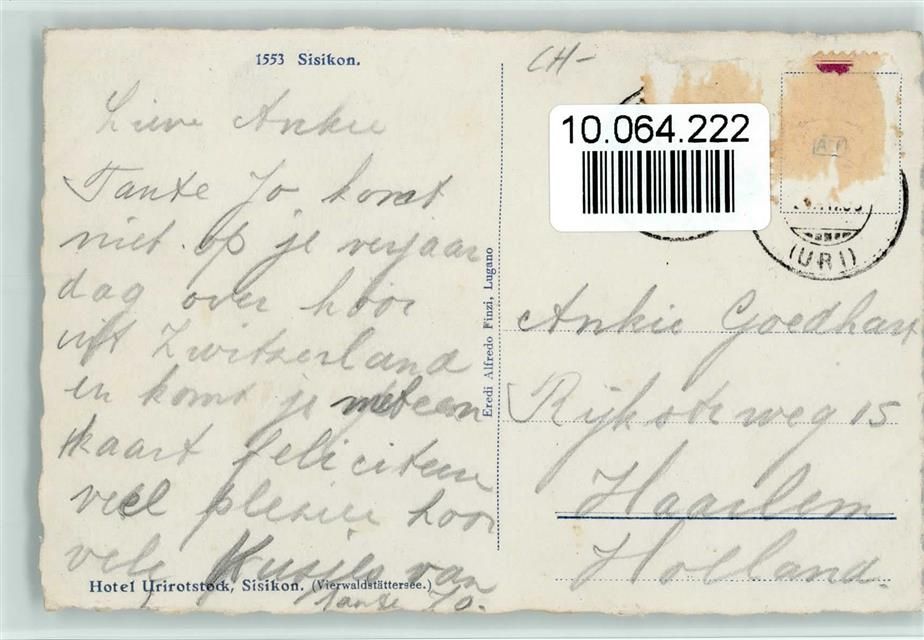 1553 Sisikon.
CH-
10.064.222
(URI)
Lieve Ankie
Tante Jo komt
niet op je verjaar
dag over hoor
uit Zwitserland
en komt je met een
kaart feliciteren
veel plezier hoor
vele Kusjes van
Tante Jo.
Hotel Urirotstock, Sisikon. (Vierwaldstättersee.)
Eredi Alfredo Finzi, Lugano
Ankie Goedhart
Rijksteweg 15
Haarlem
Holland.